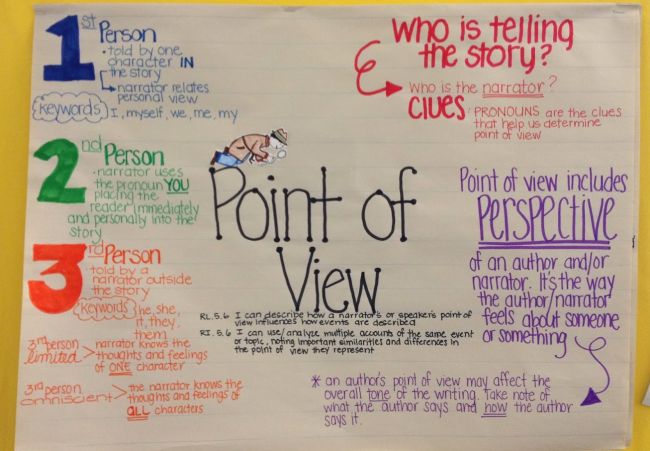 1st Person
• told by one
character IN
the story
narrator relates
personal view
Keywords
I, myself, we, me, my
2nd Person
• narrator uses
the pronoun YOU
placing the
reader immediately
and personally into the
story
3rd Person
told by a
narrator outside
the story
Keywords
he, she,
it, they,
them
3rd person
limited
narrator knows the
thoughts and feelings
of ONE character
3rd person
omniscient
the narrator knows the
thoughts and feelings of
ALL characters
Point of
View
RL.5.6 I can describe how a narrator's or speaker's point of
view influences how events are described
RI.5.6 I can use/analyze multiple accounts of the same event
or topic, noting important similarities and differences in
the point of view they represent
Who is telling
the story?
Who is the narrator?
Clues: PRONOUNS are the clues
that help us determine
point of view
Point of view includes
PERSPECTIVE
of an author and/or
narrator. It's the way
the author/narrator
feels about someone
or something
* an author's point of view may affect the
overall tone of the writing. Take note of
what the author says and how the author
says it.